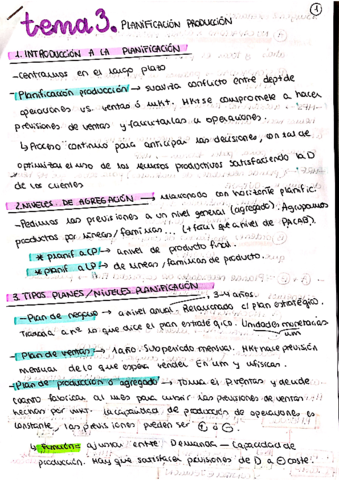 1
tema 3. PLANIFICACIÓN PRODUCCIÓN
1. INTRODUCCIÓN A LA PLANIFICACIÓN
-Centrarnos en el largo plazo
-Planificación producción → suavita conflicto entre dept de
operaciones vs. ventas ó mkt. MK se compromete a hacer
previsiones de ventas y facturarlas a operaciones.
↳ Proceso continuo para anticipar las decisiones, con sal de
optimizar el uso de los recursos productivos satisfaciendo la D
de los clientes
2. NIVELES DE AGREGACIÓN → relacionado con horizonte planific.
-Reducimos las previsiones a un nivel general (agregado). Agrupamos
productos por líneas/familias... (+ fácil q a nivel de
* planif a CP → a nivel de producto final.
* planif a LP → de líneas/familias de producto.
3. TIPOS PLANES/NIVELES PLANIFICACIÓN
, 3-4 años.
-Plan de negocio → a nivel anual. Relacionado c/ plan estratégico.
Traduce a nº lo que dice el plan estratégico. Unidades monetarias
um
-Plan de ventas → 1 año. Su periodo mensual. MK hace previsión
mensual de lo que espera vender. En um y u físicas.
-Plan de producción ó agregado → Toma el P. ventas y decide
cuánto fabricar al mes para cubrir las previsiones de ventas
hechas por mkt. La capacidad de producción de operaciones es
constante, las previsiones pueden ser ↑ ó ⊖.
↳ Función = ajustar entre Demanda — Capacidad de
producción. Hay que satisfacer previsiones de D a ⊖ coste.